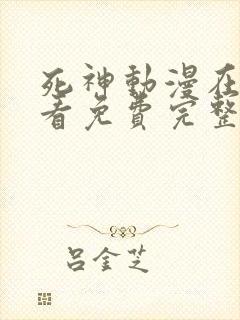 死神動漫在
看免費完整
呂金芝